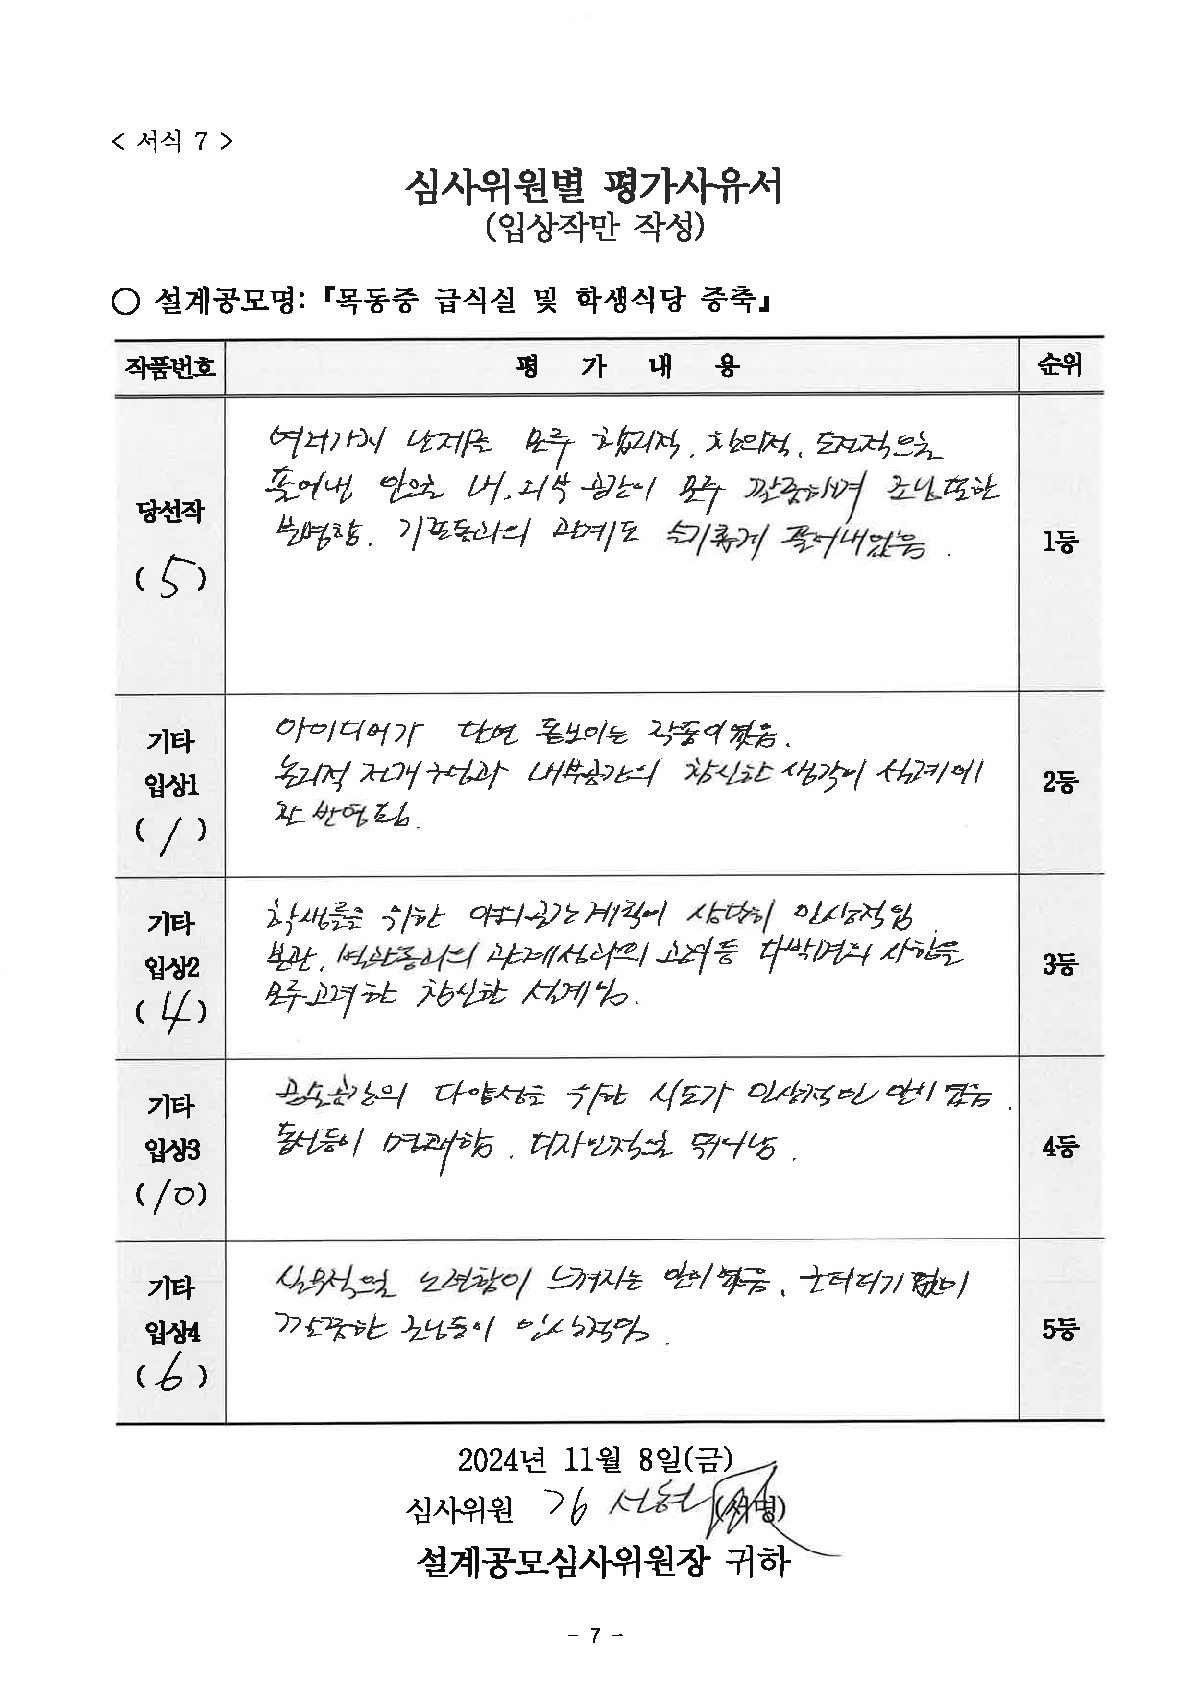 < 서식 7 >
심사위원별 평가사유서
(입상작만 작성)
○ 설계공모명: 『목동중 급식실 및 학생식당 증축』
작품번호 평 가 내 용 순위
당선작
( 5 )
여러가지 난제를 모두 합리적, 창의적, 도전적으로
풀어낸 안으로 내.외부 공간이 모두 깔끔하며 조닝또한
분명함. 기존동과의 관계도 슬기롭게 풀어내었음.
1등
기타
입상1
( 1 )
아이디어가 단연 돋보이는 작품이었음.
논리적 전개 구성과 내부공간의 참신한 생각이 설계에
잘 반영됨.
2등
기타
입상2
( 4 )
학생들을 위한 야외공간계획이 상당히 인상적임
본관, 별관동과의 관계성과의 고려등 다방면의 사항을
모두 고려한 참신한 설계임.
3등
기타
입상3
( 10 )
다양성을 위한 시도가 인상적인 안이었음.
동선등이 명쾌함. 디자인적으로 뛰어남.
4등
기타
입상4
( 6 )
실무적으로 노련함이 느껴지는 안이었음. 군더더기 없이
깔끔한 조닝등이 인상적임.
5등
2024년 11월 8일(금)
심사위원 김 선현 (서명)
설계공모심사위원장 귀하
- 7 -